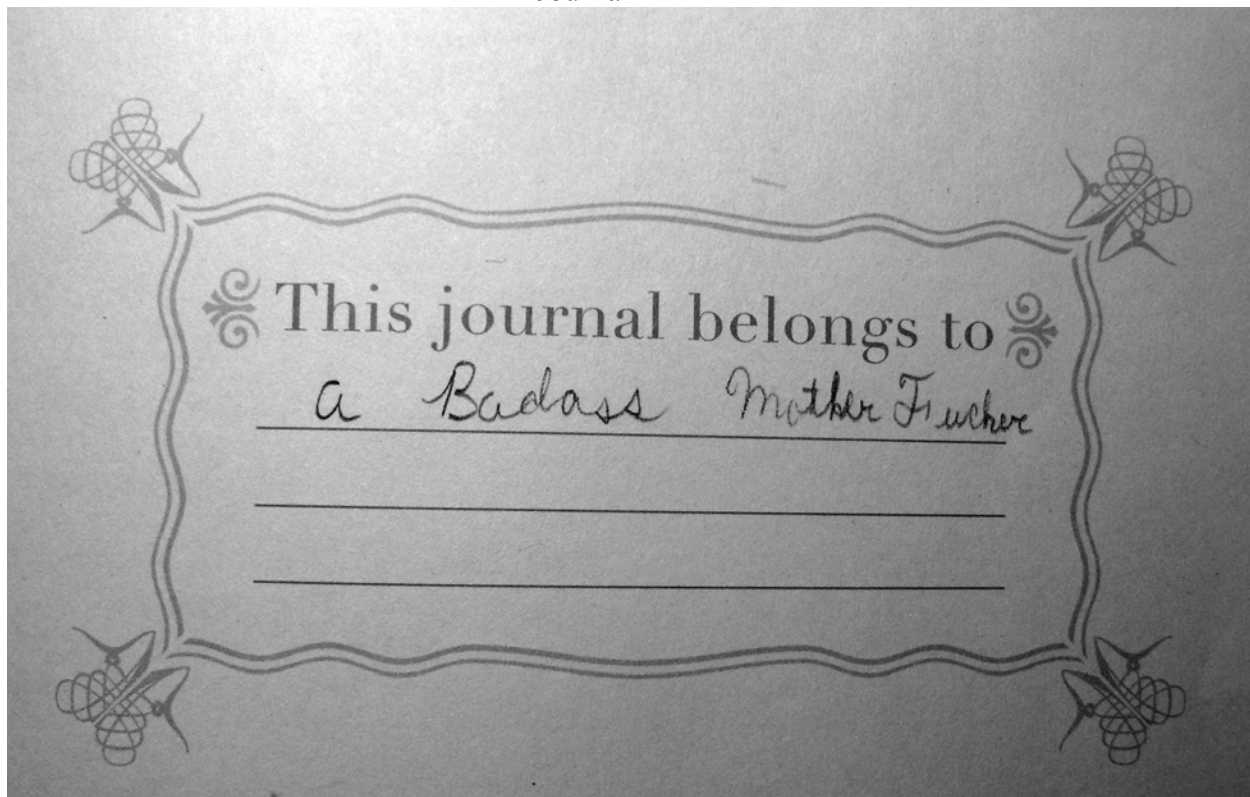 This journal belongs to
a Badass Mother Fucker